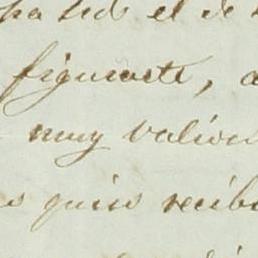 ha sido el de
figuraste, a
muy valien
s quien recib